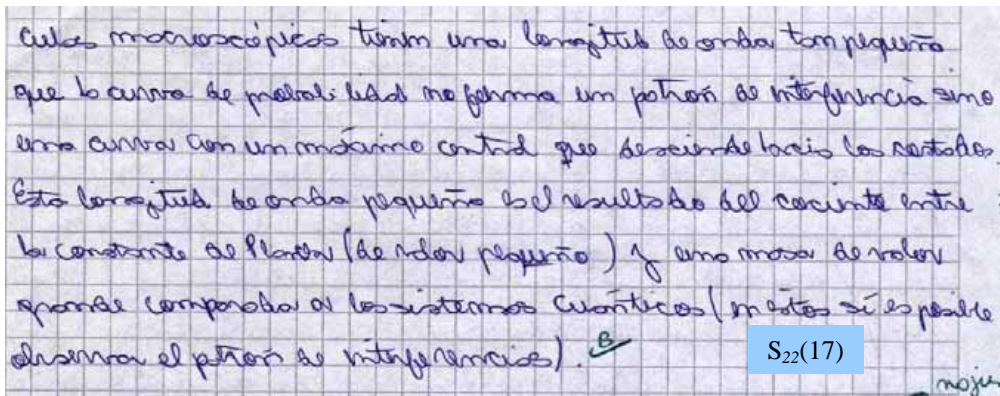 culas macroscópicas tienen una longitud de onda tan pequeña
que la curva de probabilidad no forma un patrón de interferencia sino
una curva con un máximo central que desciende hacia los costados.
Esta longitud de onda pequeña es el resultado del cociente entre
la constante de Planck (de valor pequeño) y una masa de valor
grande comparada a los sistemas cuánticos (en estos sí es posible
observar el patrón de interferencias). B
S22(17)